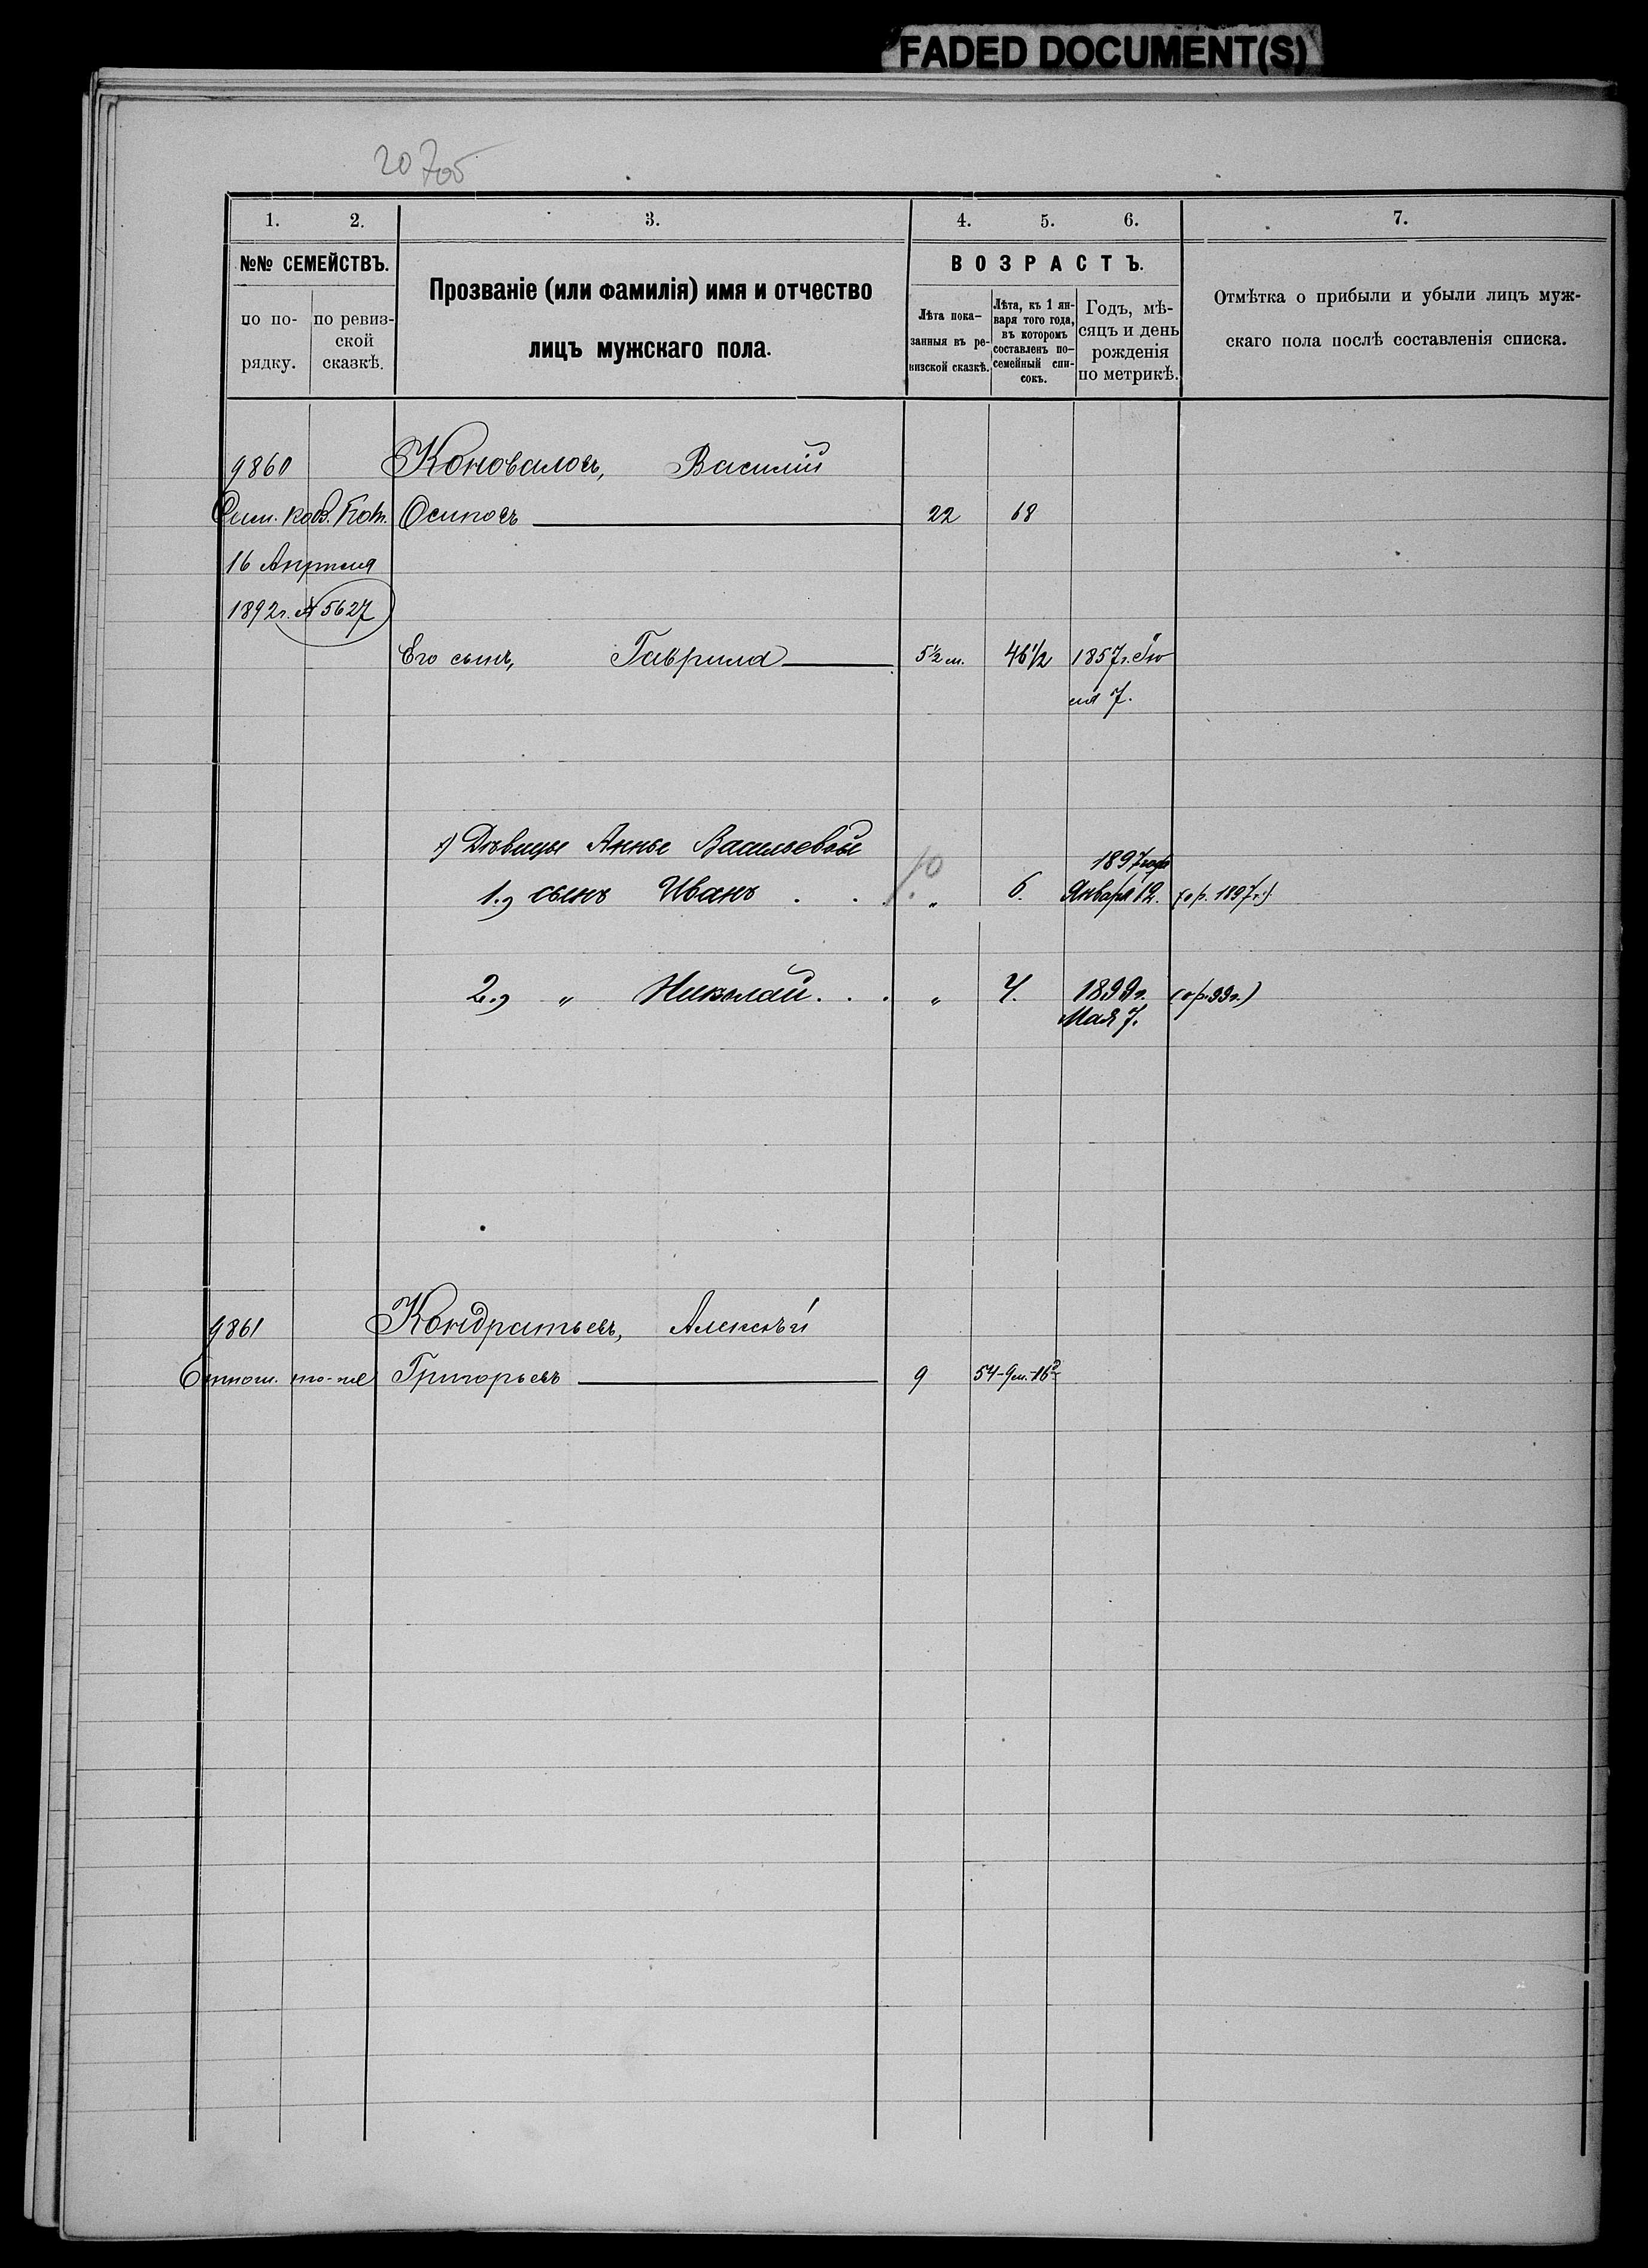 FADED DOCUMENT(S)
20 705
1. 2. 3. 4. 5. 6. 7.
№№ СЕМЕЙСТВЪ.
по по-
рядку.
по ревиз-
ской
сказкѣ.
Прозваніе (или фамилія) имя и отчество
лицъ мужскаго пола.
ВОЗРАСТЪ.
Лѣта пока-
занныя въ ре-
визской сказкѣ.
Лѣта, къ 1 ян-
варя того года,
въ которомъ
составленъ по-
семейный спи-
сокъ.
Годъ, мѣ-
сяцъ и день
рожденія
по метрикѣ.
Отмѣтка о прибыли и убыли лицъ муж-
скаго пола послѣ составленія списка.
9860 Коновалов, Василій
Осиповъ 22 68
16 Апрѣля
1892г. № 5627
Его сынъ, Гаврила 5½ м. 46½ 1857г. Iю
ля 7.
Дѣвицы Анны Васильевой
1897 года
1., сынъ Иванъ . . „ 6. Января 12. (ор. 1897г.)
2., „ Николай . . . „ 4. 1899г. (ор. 99г.)
Мая 7.
9861 Кондратьевъ, Алексѣй
Григорьевъ 9 54-9м.-16д